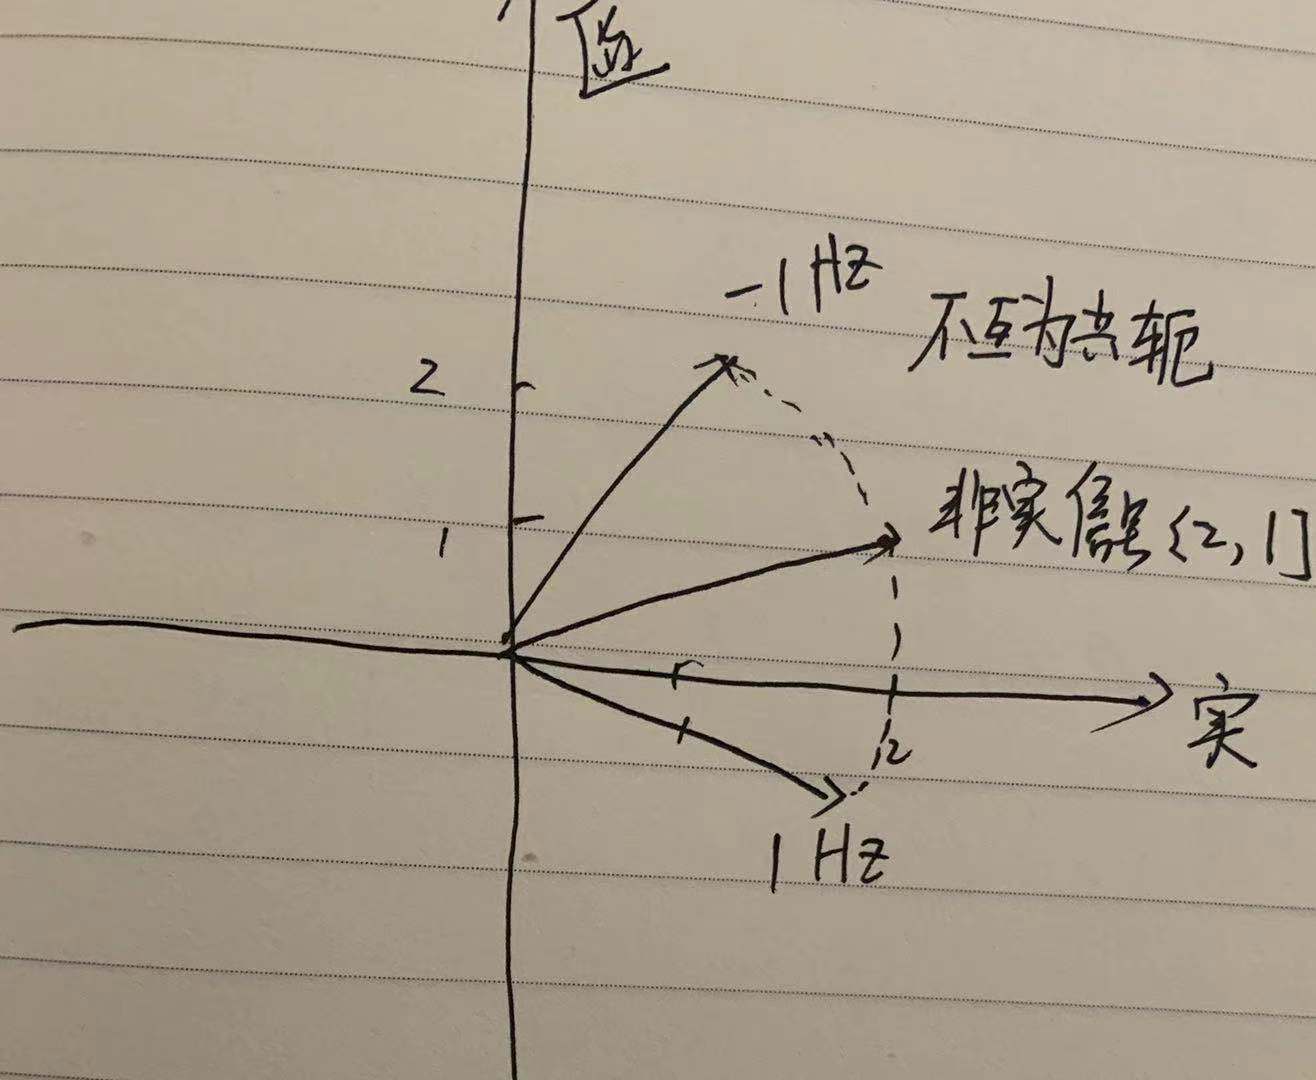 -1 HZ
不互为共轭
2
非实信号 (2, 1]
1
实
2
1 HZ